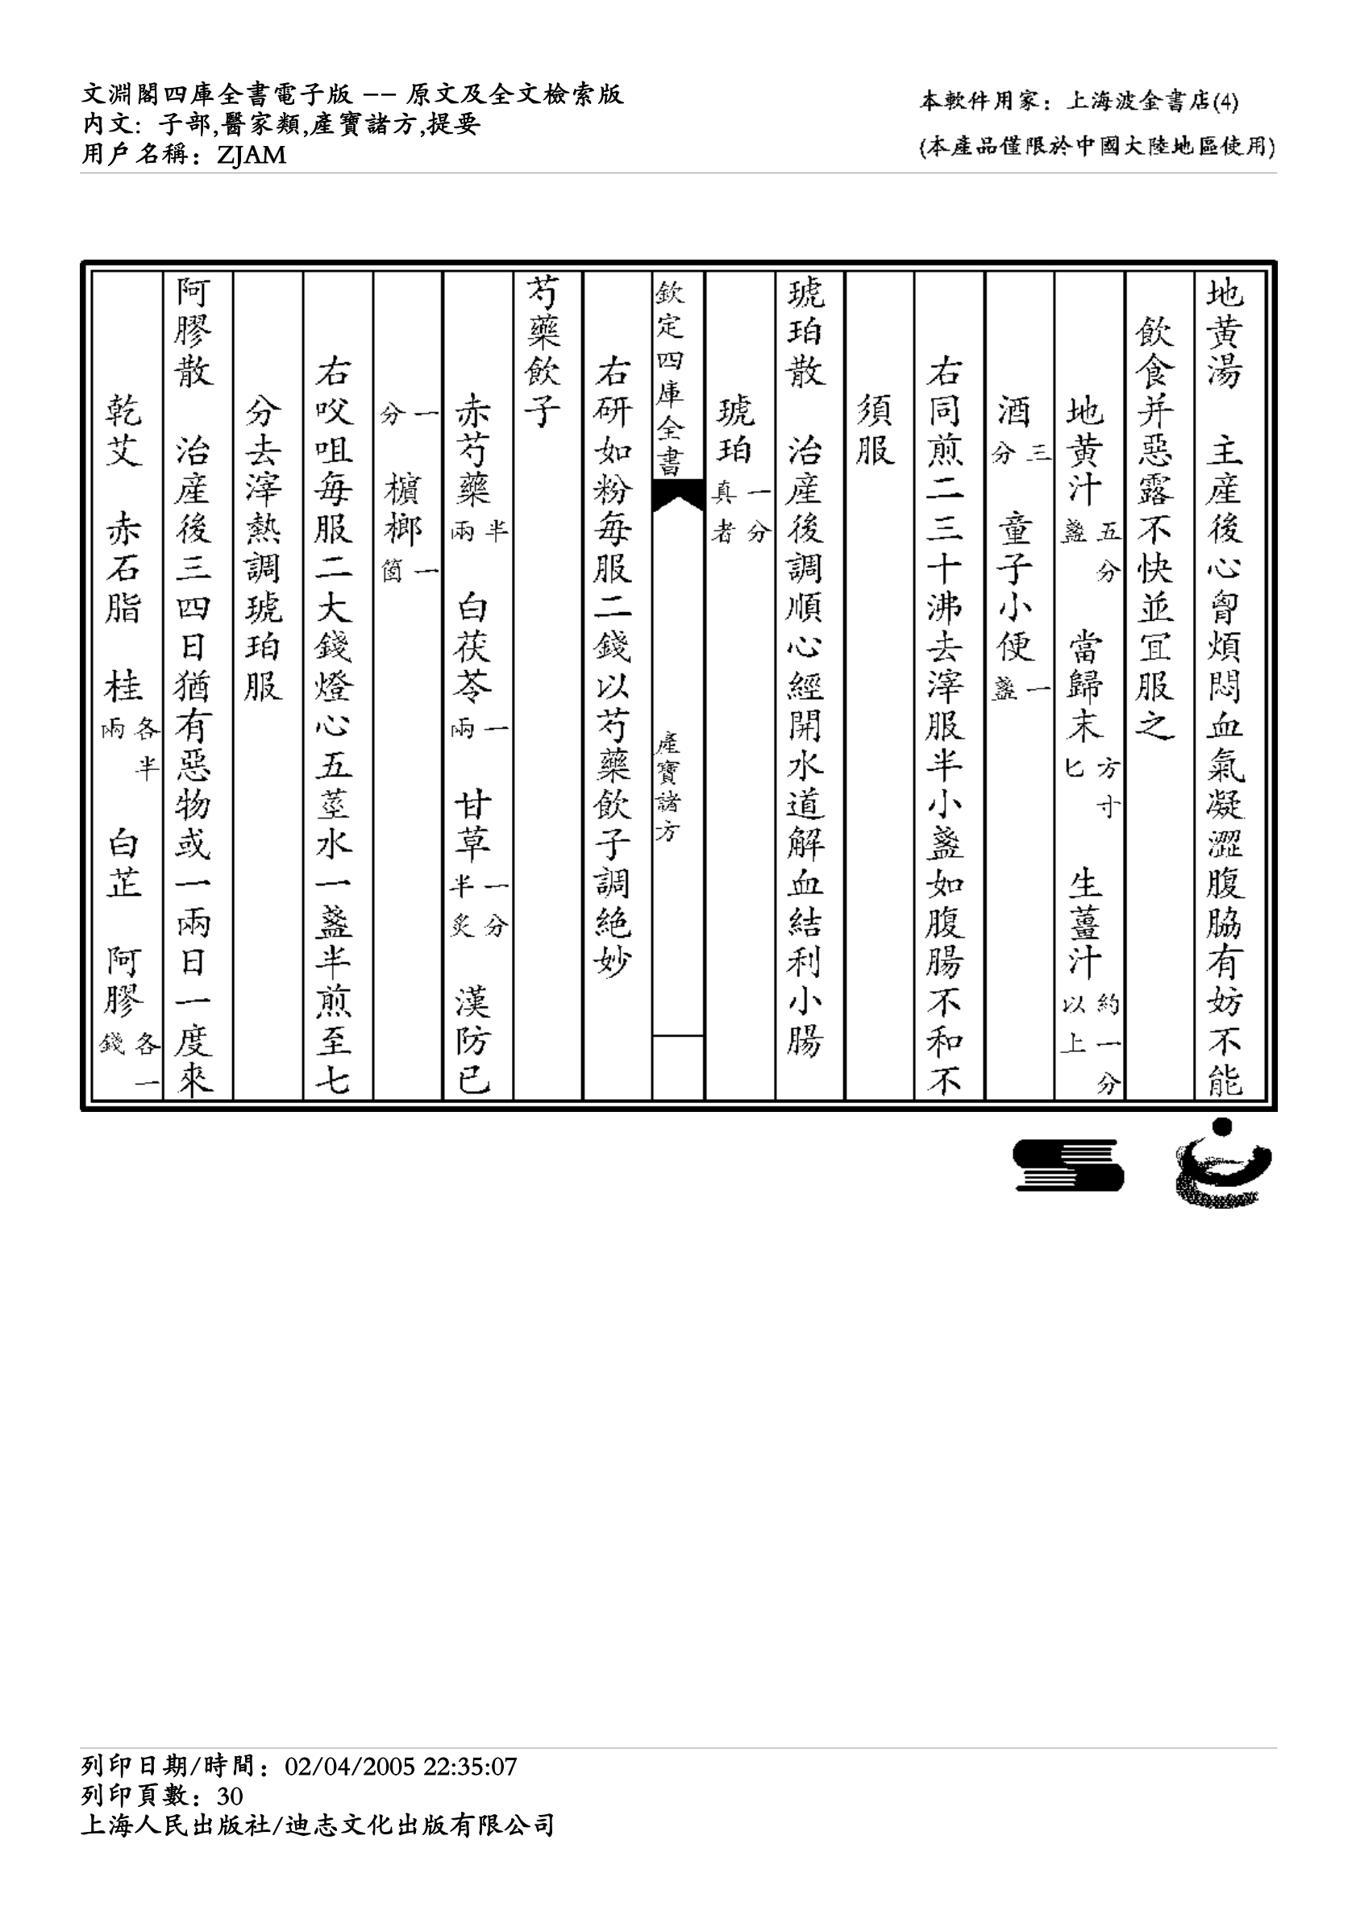 文淵閣四庫全書電子版 -- 原文及全文檢索版
内文: 子部,醫家類,產寶諸方,提要
用戶名稱: ZJAM
本軟件用家: 上海波金書店(4)
(本產品僅限於中國大陸地區使用)
地黄湯 主產後心胷煩悶血氣凝澀腹脇有妨不能
飲食并惡露不快並宜服之
地黄汁五分盞 當歸末方寸匕 生薑汁約一分以上
酒三分 童子小便一盞
右同煎二三十沸去滓服半小盞如腹腸不和不
須服
琥珀散 治產後調順心經開水道解血結利小腸
琥珀一分真者
欽定四庫全書 產寶諸方
右研如粉每服二錢以芍藥飲子調絶妙
芍藥飲子
赤芍藥半兩 白茯苓一兩 甘草一分半炙 漢防已
一分 檳榔一箇
右㕮咀每服二大錢燈心五莖水一盞半煎至七
分去滓熱調琥珀服
阿膠散 治產後三四日猶有惡物或一兩日一度來
乾艾 赤石脂 桂各半兩 白芷 阿膠各一錢
列印日期/時間: 02/04/2005 22:35:07
列印頁數: 30
上海人民出版社/迪志文化出版有限公司